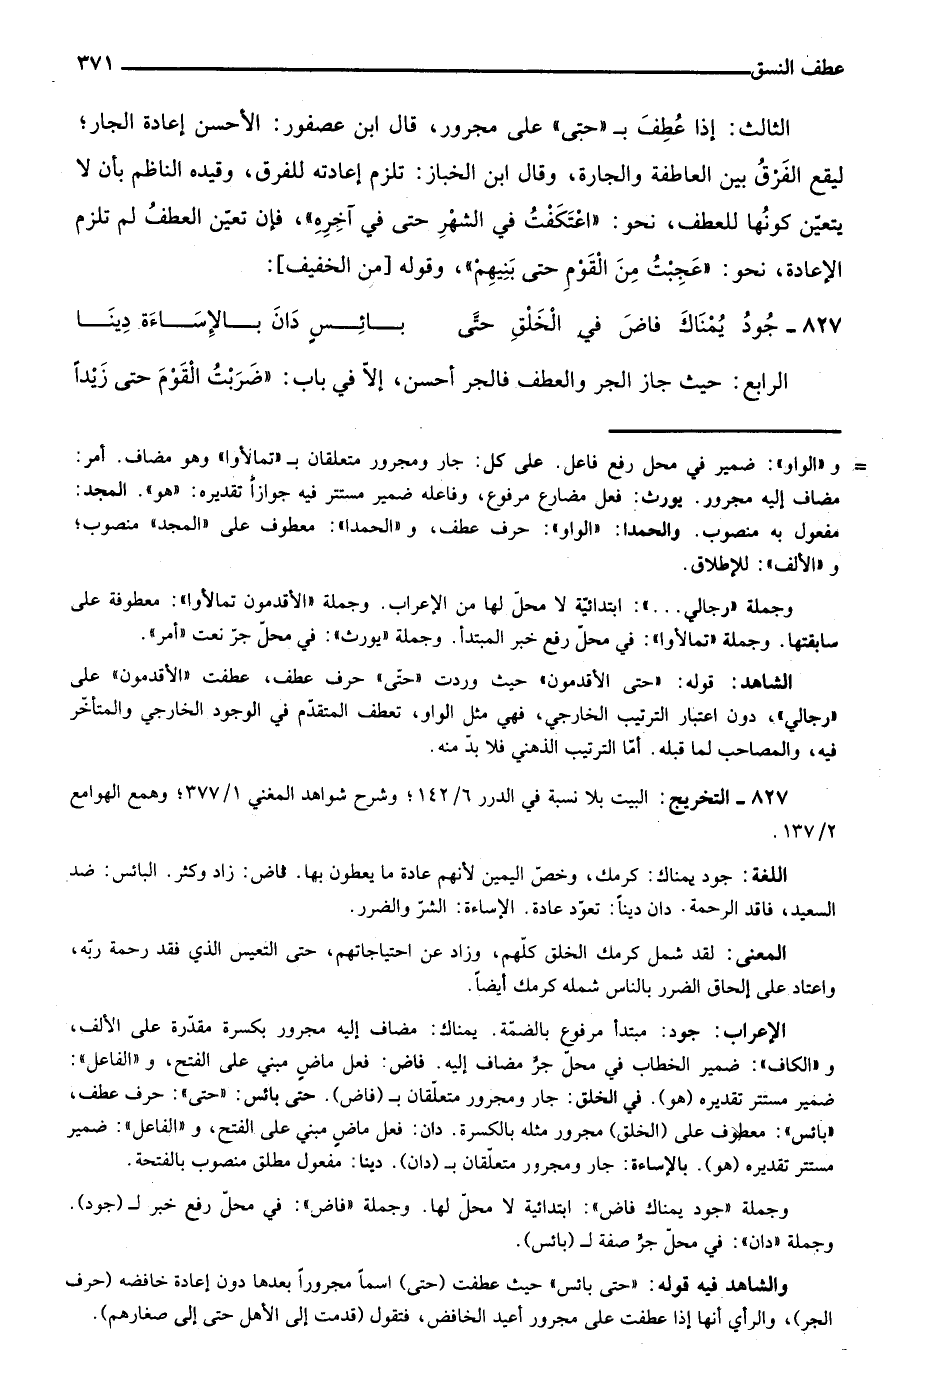 عطف النسق ٣٧١
الثالث: إذا عُطِفَ بـ «حتى» على مجرور، قال ابن عصفور: الأحسن إعادة الجار؛
ليقع الفَرْقُ بين العاطفة والجارة، وقال ابن الخباز: تلزم إعادته للفرق، وقيده الناظم بأن لا
يتعيّن كونُها للعطف، نحو: «اعْتَكَفْتُ في الشهْرِ حتى في آخِرِهِ»، فإن تعيّن العطفُ لم تلزم
الإعادة، نحو: «عَجِبْتُ مِنَ الْقَوْمِ حتى بَنِيهِمْ»، وقوله [من الخفيف]:
٨٢٧ ـ جُودُ يُمْنَاكَ فاضَ في الْخَلْقِ حتَّى بـائِـسٍ دَانَ بـالإِسَـاءَة دِينَـا
الرابع: حيث جاز الجر والعطف فالجر أحسن، إلاّ في باب: «ضَرَبْتُ الْقَوْمَ حتى زَيْداً
= و «الواو»: ضمير في محل رفع فاعل. على كل: جار ومجرور متعلقان بـ «تمالأوا» وهو مضاف. أمر:
مضاف إليه مجرور. يورث: فعل مضارع مرفوع، وفاعله ضمير مستتر فيه جوازاً تقديره: «هو». المجد:
مفعول به منصوب. والحمدا: «الواو»: حرف عطف، و «الحمدا»: معطوف على «المجد» منصوب؛
و «الألف»: للإطلاق.
وجملة «رجالي...»: ابتدائيّة لا محلّ لها من الإعراب. وجملة «الأقدمون تمالأوا»: معطوفة على
سابقتها. وجملة «تمالأوا»: في محلّ رفع خبر المبتدأ. وجملة «يورث»: في محلّ جرّ نعت «أمر».
الشاهد: قوله: «حتى الأقدمون» حيث وردت «حتّى» حرف عطف، عطفت «الأقدمون» على
«رجالي»، دون اعتبار الترتيب الخارجي، فهي مثل الواو، تعطف المتقدّم في الوجود الخارجي والمتأخّر
فيه، والمصاحب لما قبله. أمّا الترتيب الذهني فلا بدّ منه.
٨٢٧ ـ التخريج: البيت بلا نسبة في الدرر ٦/ ١٤٢؛ وشرح شواهد المغني ١/ ٣٧٧؛ وهمع الهوامع
٢/ ١٣٧.
اللغة: جود يمناك: كرمك، وخصّ اليمين لأنهم عادة ما يعطون بها. فاض: زاد وكثر. البائس: ضد
السعيد، فاقد الرحمة. دان ديناً: تعوّد عادة. الإساءة: الشرّ والضرر.
المعنى: لقد شمل كرمك الخلق كلّهم، وزاد عن احتياجاتهم، حتى التعيس الذي فقد رحمة ربّه،
واعتاد على إلحاق الضرر بالناس شمله كرمك أيضاً.
الإعراب: جود: مبتدأ مرفوع بالضمّة. يمناك: مضاف إليه مجرور بكسرة مقدّرة على الألف،
و «الكاف»: ضمير الخطاب في محلّ جرّ مضاف إليه. فاض: فعل ماضٍ مبني على الفتح، و «الفاعل»:
ضمير مستتر تقديره (هو). في الخلق: جار ومجرور متعلّقان بـ (فاض). حتى بائس: «حتى»: حرف عطف،
«بائس»: معطوف على (الخلق) مجرور مثله بالكسرة. دان: فعل ماضٍ مبني على الفتح، و «الفاعل»: ضمير
مستتر تقديره (هو). بالإساءة: جار ومجرور متعلّقان بـ (دان). دينا: مفعول مطلق منصوب بالفتحة.
وجملة «جود يمناك فاض»: ابتدائية لا محلّ لها. وجملة «فاض»: في محلّ رفع خبر لـ (جود).
وجملة «دان»: في محلّ جرّ صفة لـ (بائس).
والشاهد فيه قوله: «حتى بائس» حيث عطفت (حتى) اسماً مجروراً بعدها دون إعادة خافضه (حرف
الجر)، والرأي أنها إذا عطفت على مجرور أعيد الخافض، فتقول (قدمت إلى الأهل حتى إلى صغارهم).